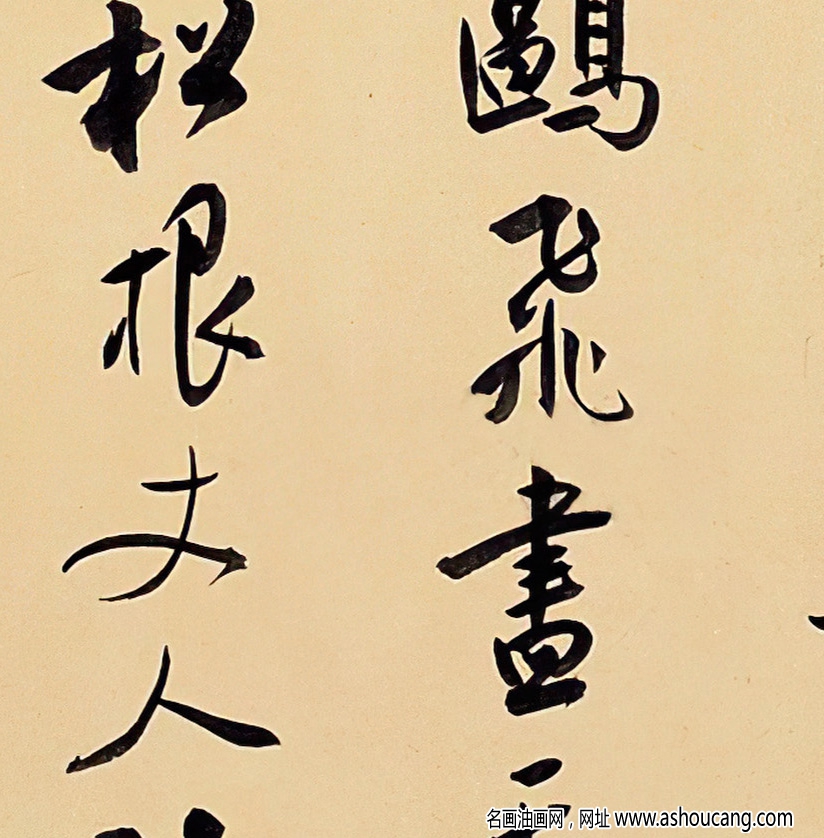 鷗飛畫
松根人
名画油画网，网址 www.ashoucang.com